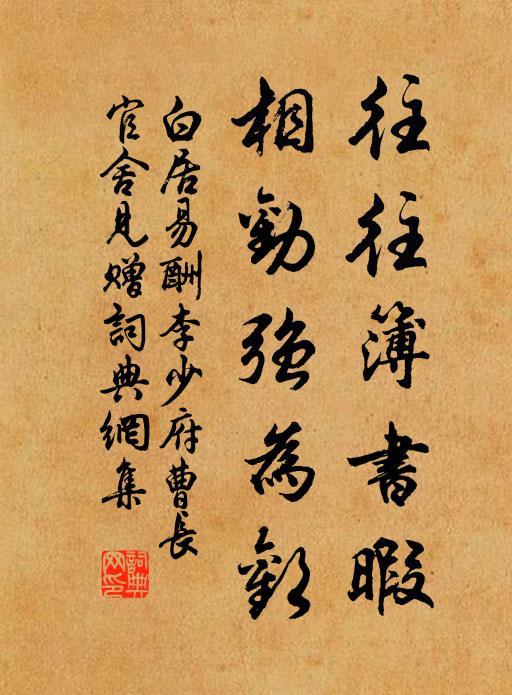 往往簿書暇
相勸強為歡
白居易酬李少府曹長
官舍見贈詞典網集
詞典
网印